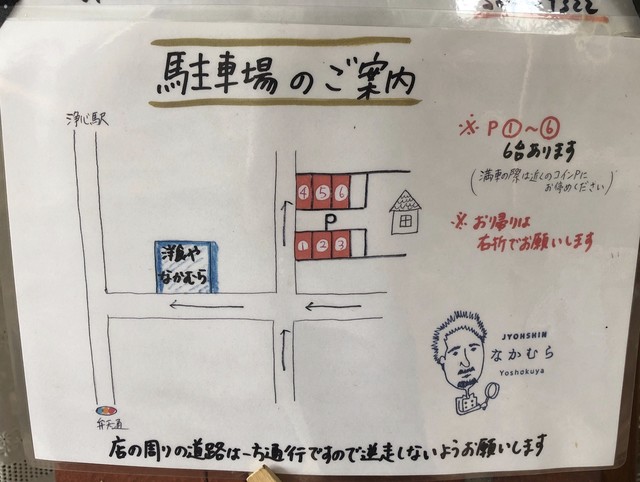 駐車場のご案内
浄心駅
※P①〜⑥
6台あります
(満車の際は近くのコインPに
お停めください)
④⑤⑥
P
①②③
※お帰りは
右折でお願いします
洋食や
なかむら
JYOHSHIN
なかむら
Yoshokuya
弁天通
店の周りの道路は一方通行ですので逆走しないようお願いします